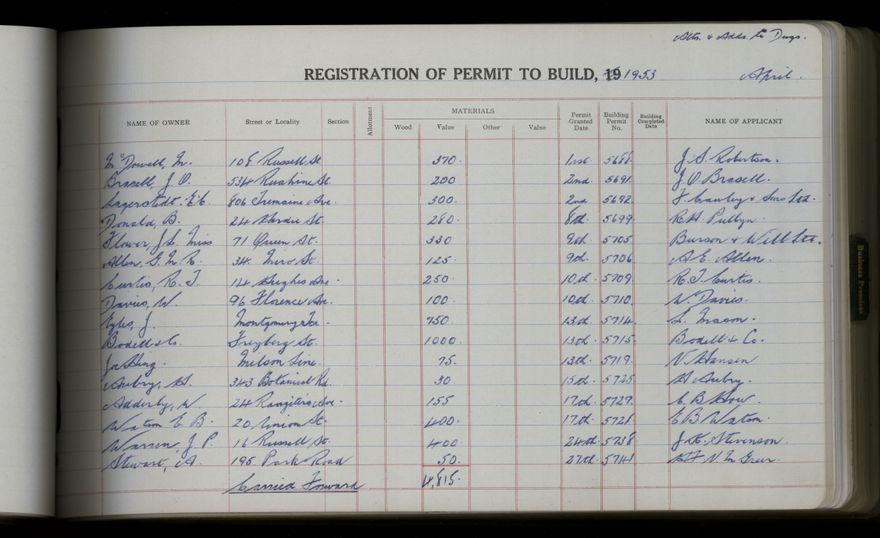 Alts. & Adds. to Dwgs.
REGISTRATION OF PERMIT TO BUILD, 19 1953 April.
NAME OF OWNER Street or Locality Section Allotment MATERIALS Wood Value Other Value Permit Granted Date Building Permit No. Building Completed Date NAME OF APPLICANT
McDowell, M. 108 Russell St 370. 1st 5688. J. S. Robertson.
Brasell, J. O. 534 Ruahine St. 200 2nd 5691. J. O Brasell.
Lagerstedt. E.C. 806 Tremaine Ave. 300. 2nd 5692. F. Cawley & Sons Ltd.
Donald, B. 24 St. 280. 8th. 5699 R. H. Pullyn.
Flower, J. L. Miss 71 Queen St. 330 9th. 5705 Burson & Will Ltd.
Allen, G. M. R. 34. St. 125. 9th 5706 A. E. Allen.
Curtis, R. J. 14 Hughes Ave. 250. 10th. 5709 R. J. Curtis.
Davies, W. 96 Florence Ave. 100. 10th. 5710. W Davies.
Eyles, J. Montgomery Tce. 750. 13th. 5714. L. Mason.
Bodell & Co. Freyberg St. 1000. 13th. 5715. Bodell & Co.
Nelson Line. 75. 13th. 5719. V. Hansen
Aubry, H. 343 Botanical Rd. 30 15th. 5725 H Aubry.
Adderby, W 24 Rangitira Ave. 155 17th. 5727. E. B How.
Watson E. B. 20 Union St. 400. 17th. 5728 E B Watson.
Warren, J P. 16 Russell St. 400. 24th. 5738 J. E. Stevenson.
Stewart, A. 195 Park Road 50. 27th. 5741 N. McGreer.
Carried Forward 4,815.
Business Premises